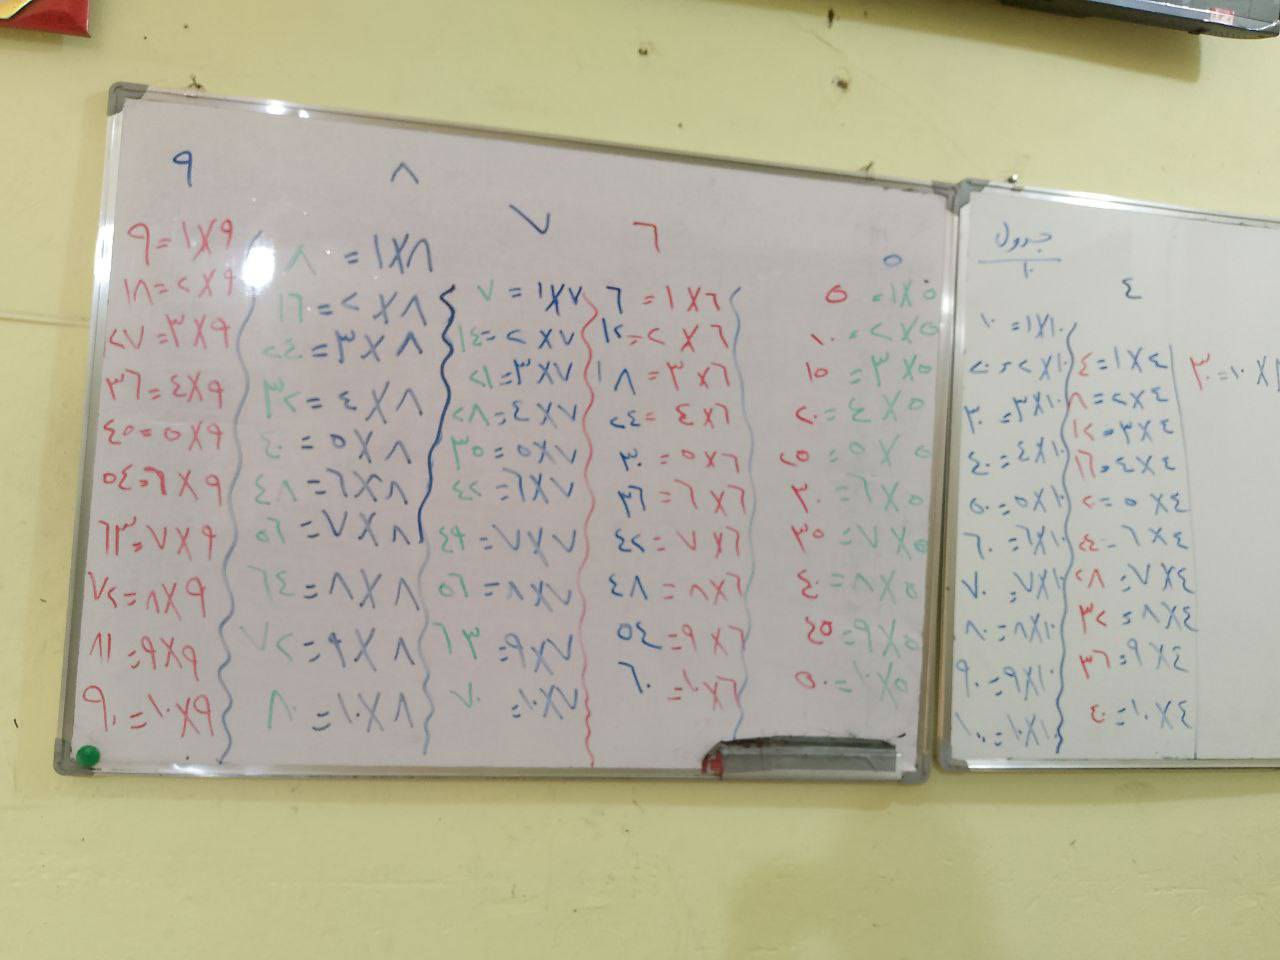 جدول
١٠
٤
×١٠=٣٠
٤×١=٤
٤×٢=٨
٤×٣=١٢
٤×٤=١٦
٤×٥=٢٠
٤×٦=٢٤
٤×٧=٢٨
٤×٨=٣٢
٤×٩=٣٦
٤×١٠=٤٠
١٠×١=١٠
١٠×٢=٢٠
١٠×٣=٣٠
١٠×٤=٤٠
١٠×٥=٥٠
١٠×٦=٦٠
١٠×٧=٧٠
١٠×٨=٨٠
١٠×٩=٩٠
١٠×١٠=١٠٠
٥
٥×١=٥
٥×٢=١٠
٥×٣=١٥
٥×٤=٢٠
٥×٥=٢٥
٥×٦=٣٠
٥×٧=٣٥
٥×٨=٤٠
٥×٩=٤٥
٥×١٠=٥٠
٦
٦×١=٦
٦×٢=١٢
٦×٣=١٨
٦×٤=٢٤
٦×٥=٣٠
٦×٦=٣٦
٦×٧=٤٢
٦×٨=٤٨
٦×٩=٥٤
٦×١٠=٦٠
٧
٧×١=٧
٧×٢=١٤
٧×٣=٢١
٧×٤=٢٨
٧×٥=٣٥
٧×٦=٤٢
٧×٧=٤٩
٧×٨=٥٦
٧×٩=٦٣
٧×١٠=٧٠
٨
٨×١=٨
٨×٢=١٦
٨×٣=٢٤
٨×٤=٣٢
٨×٥=٤٠
٨×٦=٤٨
٨×٧=٥٦
٨×٨=٦٤
٨×٩=٧٢
٨×١٠=٨٠
٩
٩×١=٩
٩×٢=١٨
٩×٣=٢٧
٩×٤=٣٦
٩×٥=٤٥
٩×٦=٥٤
٩×٧=٦٣
٩×٨=٧٢
٩×٩=٨١
٩×١٠=٩٠